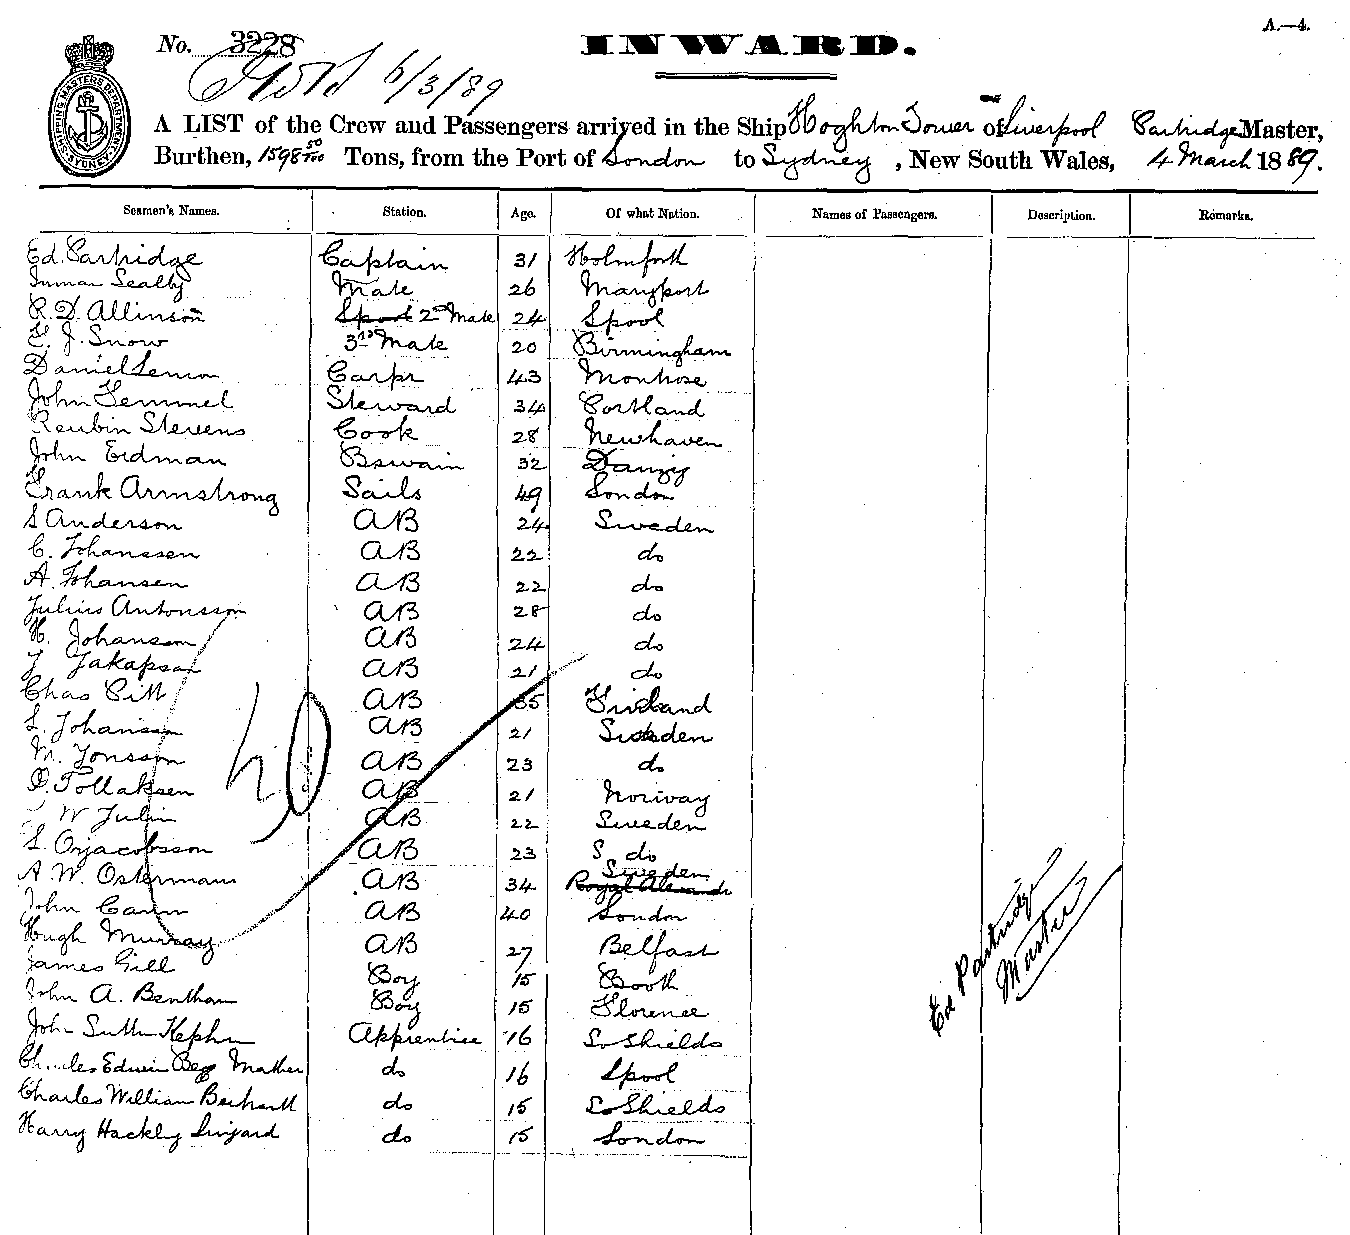 A.—4.
No. 3228
INWARD.
6/3/89
A LIST of the Crew and Passengers arrived in the Ship Hoghton Tower of Liverpool Partridge Master,
Burthen, 1598 50/100 Tons, from the Port of London to Sydney, New South Wales, 4 March 1889.
SHIPPING MASTERS DEPARTMENT SYDNEY
Seamen's Names. Station. Age. Of what Nation. Names of Passengers. Description. Remarks.
Ed. Partridge Captain 31 Holmforth
Inman Sealby Mate 26 Maryport
R. D. Allinson 2nd Mate 24 Lpool
F. J. Snow 3rd Mate 20 Birmingham
Daniel Lemon Carpr 43 Montrose
John Gemmel Steward 34 Portland
Reubin Stevens Cook 28 Newhaven
John Erdman Bswain 32 Danzig
Frank Armstrong Sails 49 London
S Anderson AB 24 Sweden
C. Johanssen AB 22 do
A. Johansen AB 22 do
Julius Antonsson AB 28 do
H. Johanson AB 24 do
J Jakapson AB 21 do
Chas Pitt AB 35
L. Johanssn AB 21 Sweden
M. Jonsson AB 23 do
O. Tollaksen AB 21 Norway
W Julin AB 22 Sweden
L. AB 23 S do
A. W. Ostermans AB 34 Sweden
John Cann AB 40 London
Hugh Murray AB 27 Belfast
James Gill Boy 15 Booth
John A. Bentham Boy 15 Florence
John Apprentice 16 So Shields
Charles Edwin Mather do 16 Lpool
Charles William do 15 So Shields
Harry Hackly do 15 London
Ed Partridge
Master